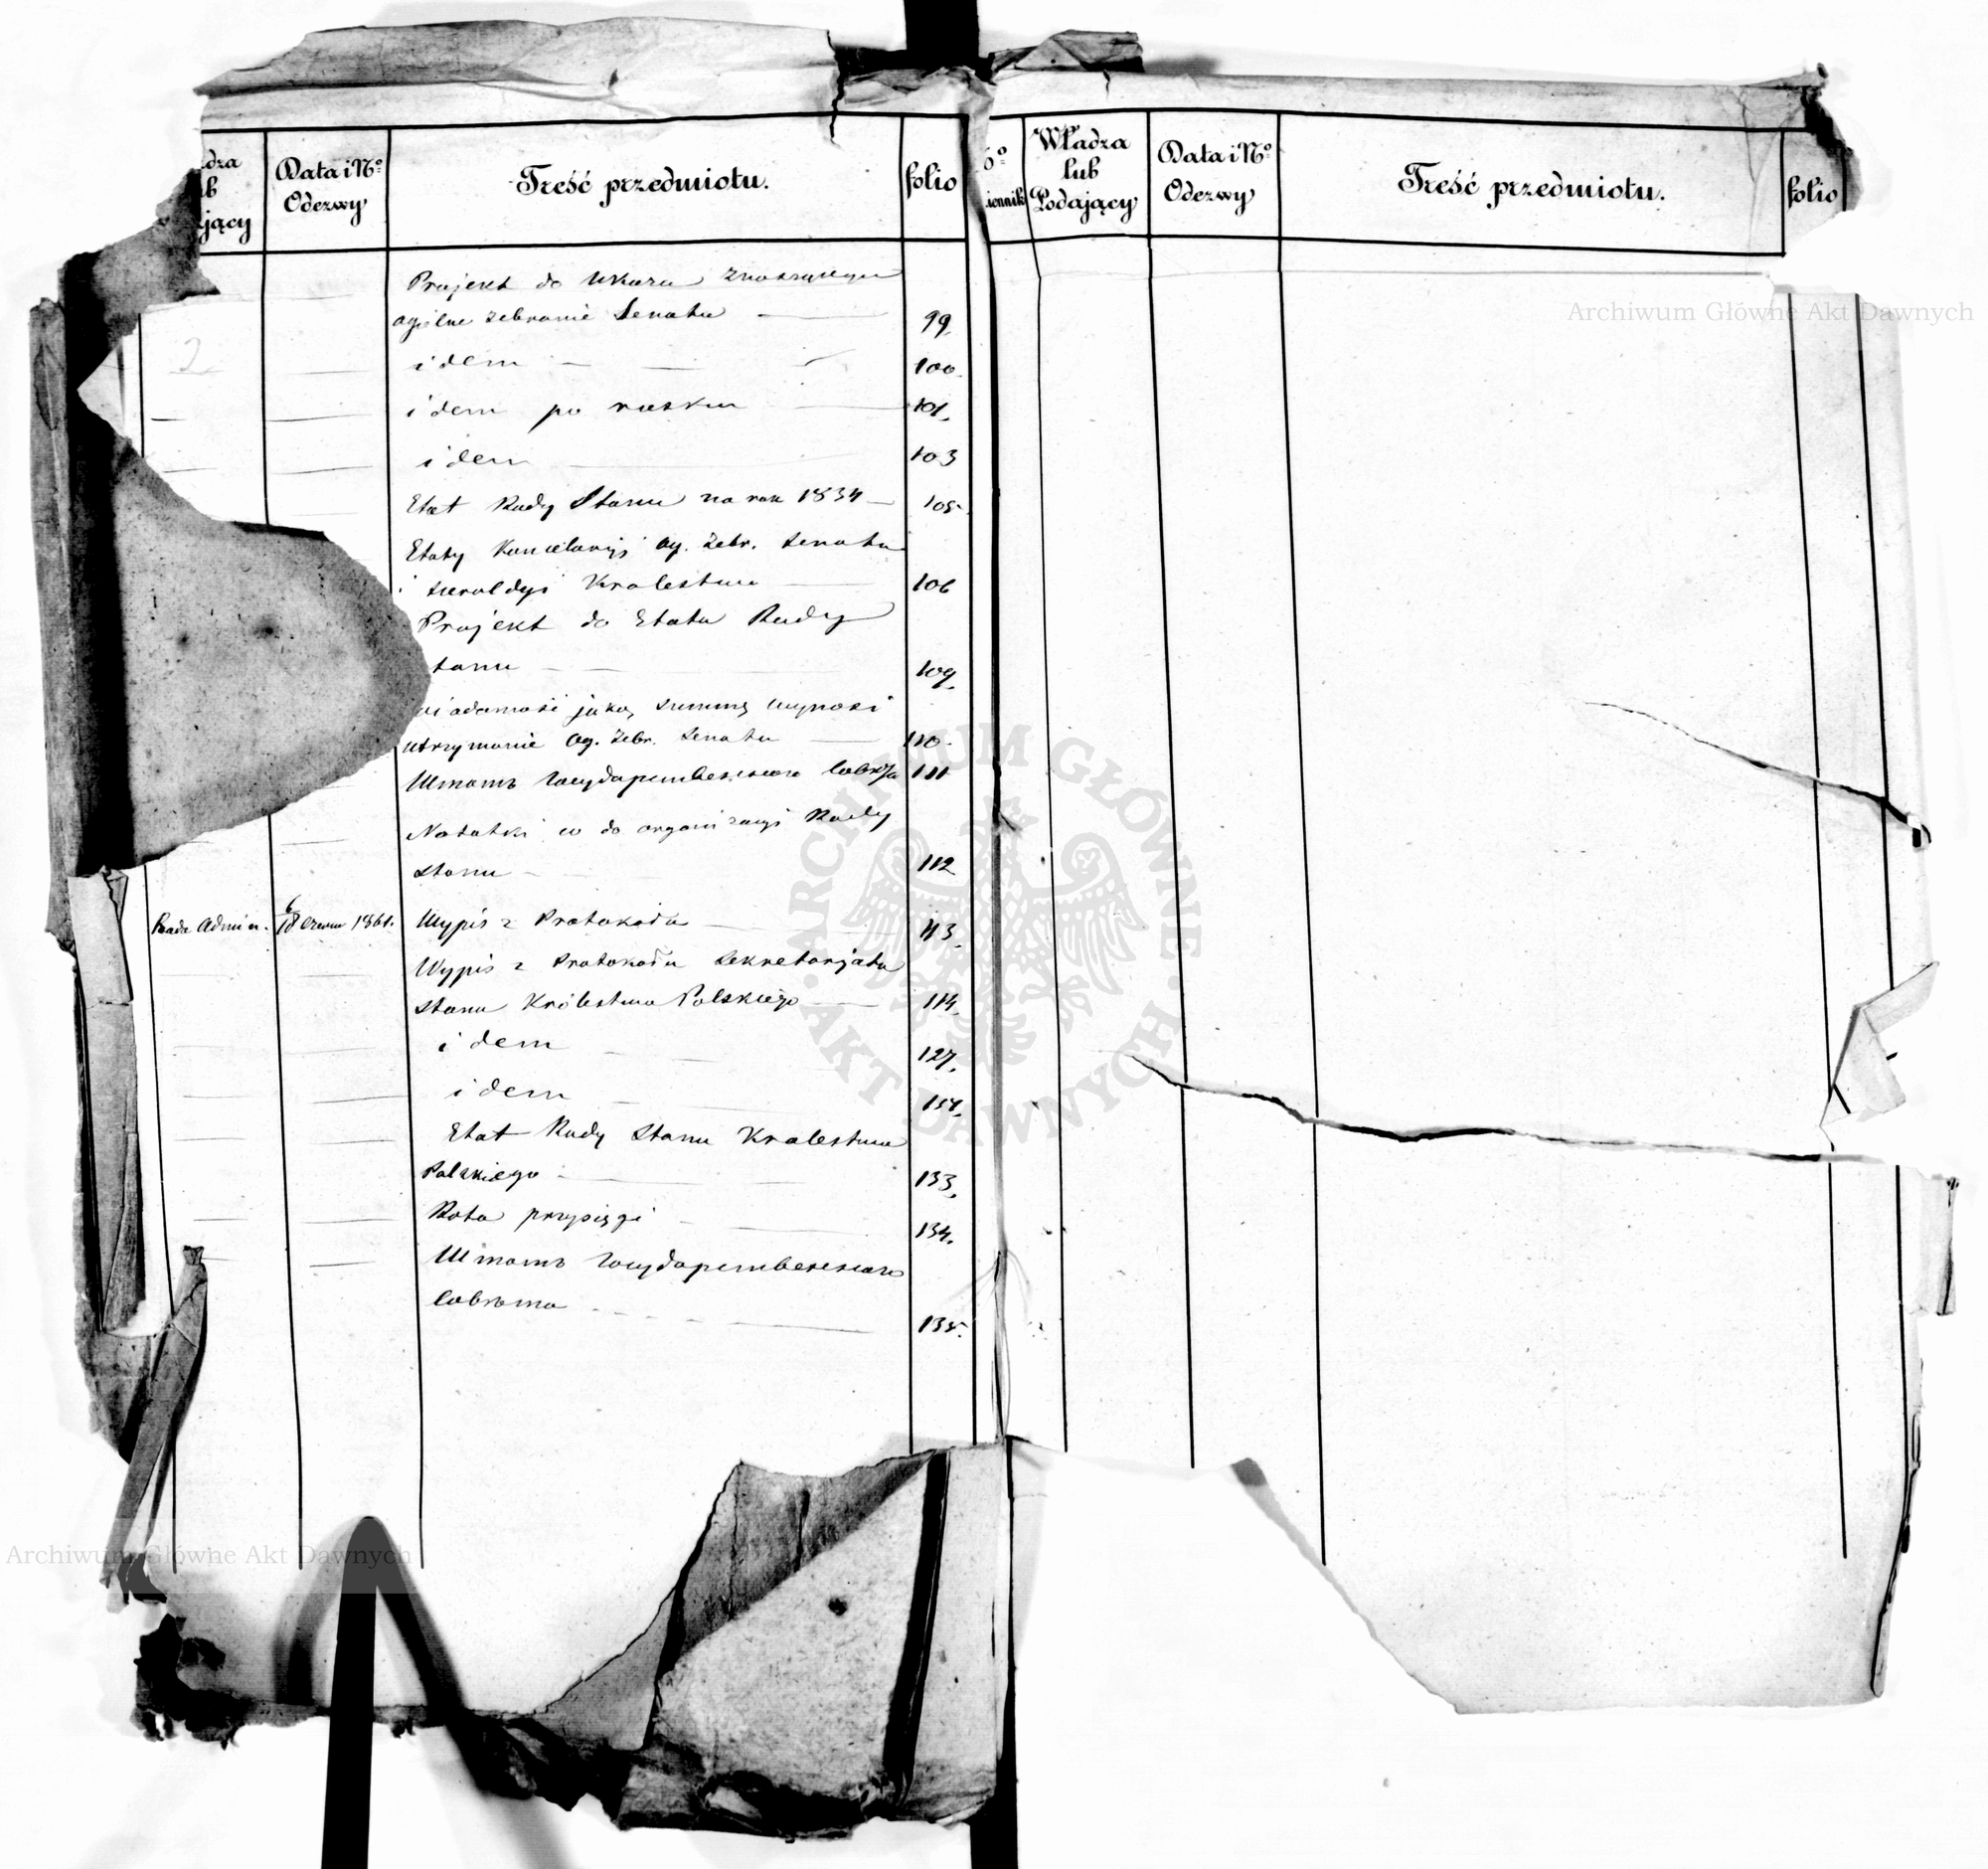 Data i No
Odezwy
Treść przedmiotu.
folio
Władza
lub
Podający
Data i No
Odezwy
Treść przedmiotu.
folio
Projekt do Ukazu znoszącego
ogólne zebranie Senatu 99.
idem 100.
idem po rusku 101.
idem 103
Etat Rady Stanu na rok 1834 105.
Etaty Kancelaryi Og. Zebr. Senatu
i Heroldyi Królestwa 106
Projekt do Etatu Rady
Stanu 109.
wiadomość jaką summę wynosi
utrzymanie Og. Zebr. Senatu 110.
Штатъ Государственнаго Совѣта 111
Notatki co do organizacyi Rady
Stanu 112
Rada Admin. 6/18 Czerw 1861. Wypis z Protokołu 113.
Wypis z Protokołu Sekretarjatu
Stanu Królestwa Polskiego 114.
idem 127.
idem
Etat Rady Stanu Królestwa
Polskiego 133.
Rota przysięgi 134.
Штатъ Государственнаго
Совѣта 135.
Archiwum Główne Akt Dawnych
ARCHIWUM GŁÓWNE AKT DAWNYCH
Archiwum Główne Akt Dawnych